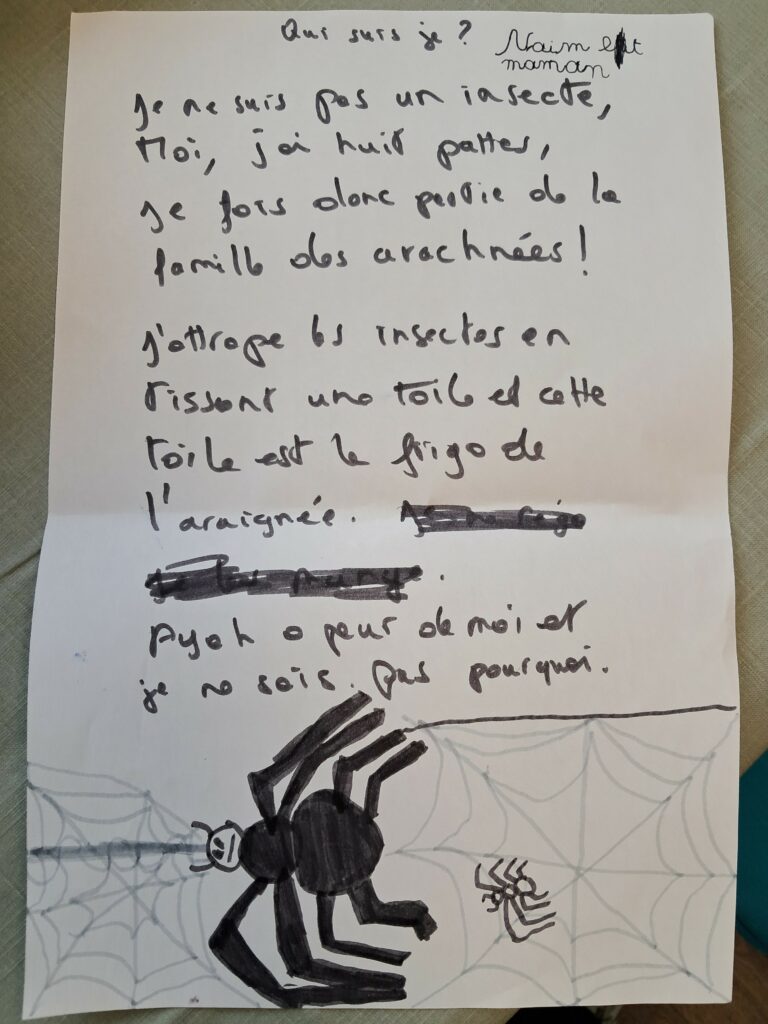 Qui suis je ?
Naim et
maman
Je ne suis pas un insecte,
Moi, j'ai huit pattes,
Je fais donc partie de la
famille des arachnées !
J'attrape les insectes en
tissant une toile et cette
toile est le frigo de
l'araignée.
Ayah a peur de moi et
je ne sais pas pourquoi.